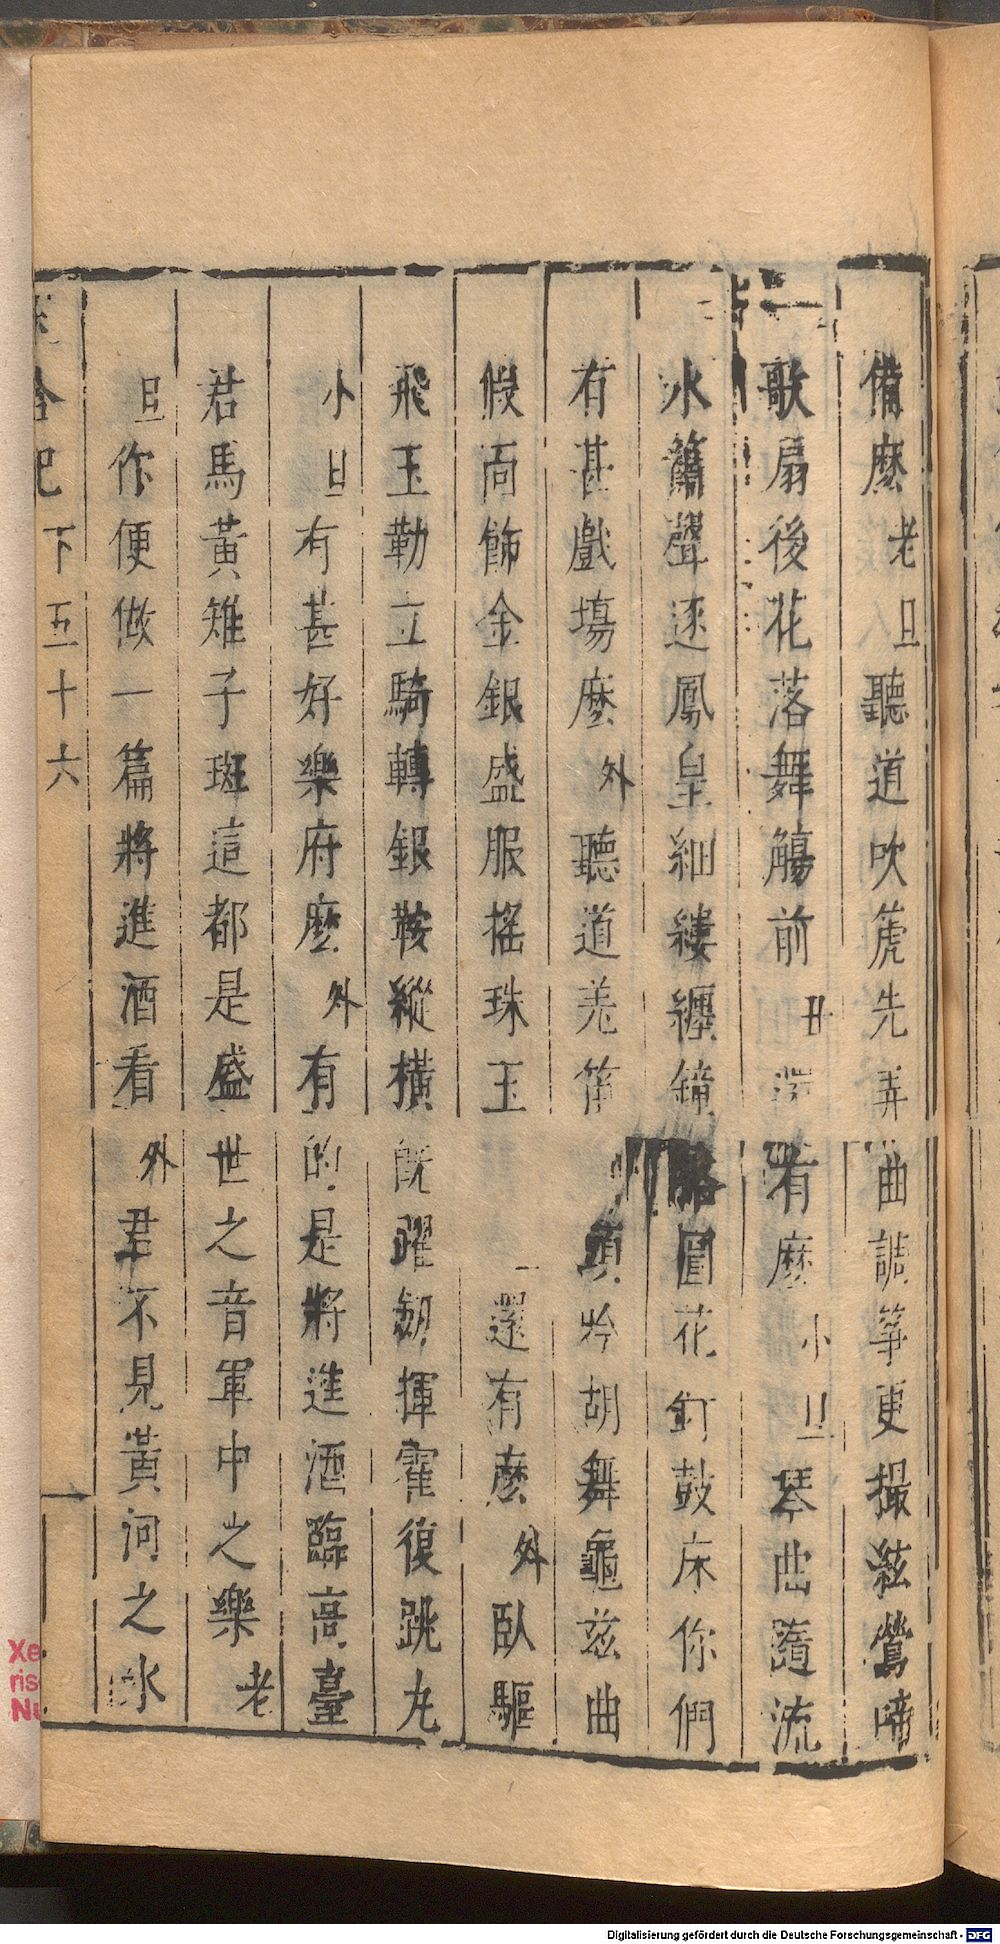 備麼老旦聽道吹篪先弄曲調箏更撮絃鶯啼
歌扇後花落舞觴前丑還有麼小旦琴曲隨流
水簫聲逐鳳皇細縷纏鐘略圓花釘鼓床你們
有甚戲塲麼外聽道羌笛隴頭吟胡舞龜兹曲
假面飾金銀盛服搖珠玉還有麼外臥驅
飛玉勒立騎轉銀鞍縱橫旣躍劒揮霍復跳丸
小旦有甚好樂府麼外有的是將進酒臨高臺
君馬黃雉子斑這都是盛世之音軍中之樂老
旦作便做一篇將進酒看外君不見黃河之水
合記 下五十六
Digitalisierung gefördert durch die Deutsche Forschungsgemeinschaft - DFG